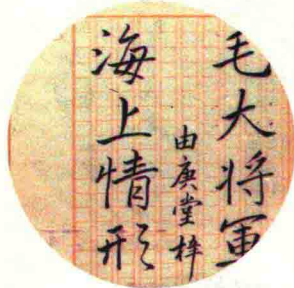 毛大将軍
由庚堂梓
海上情形